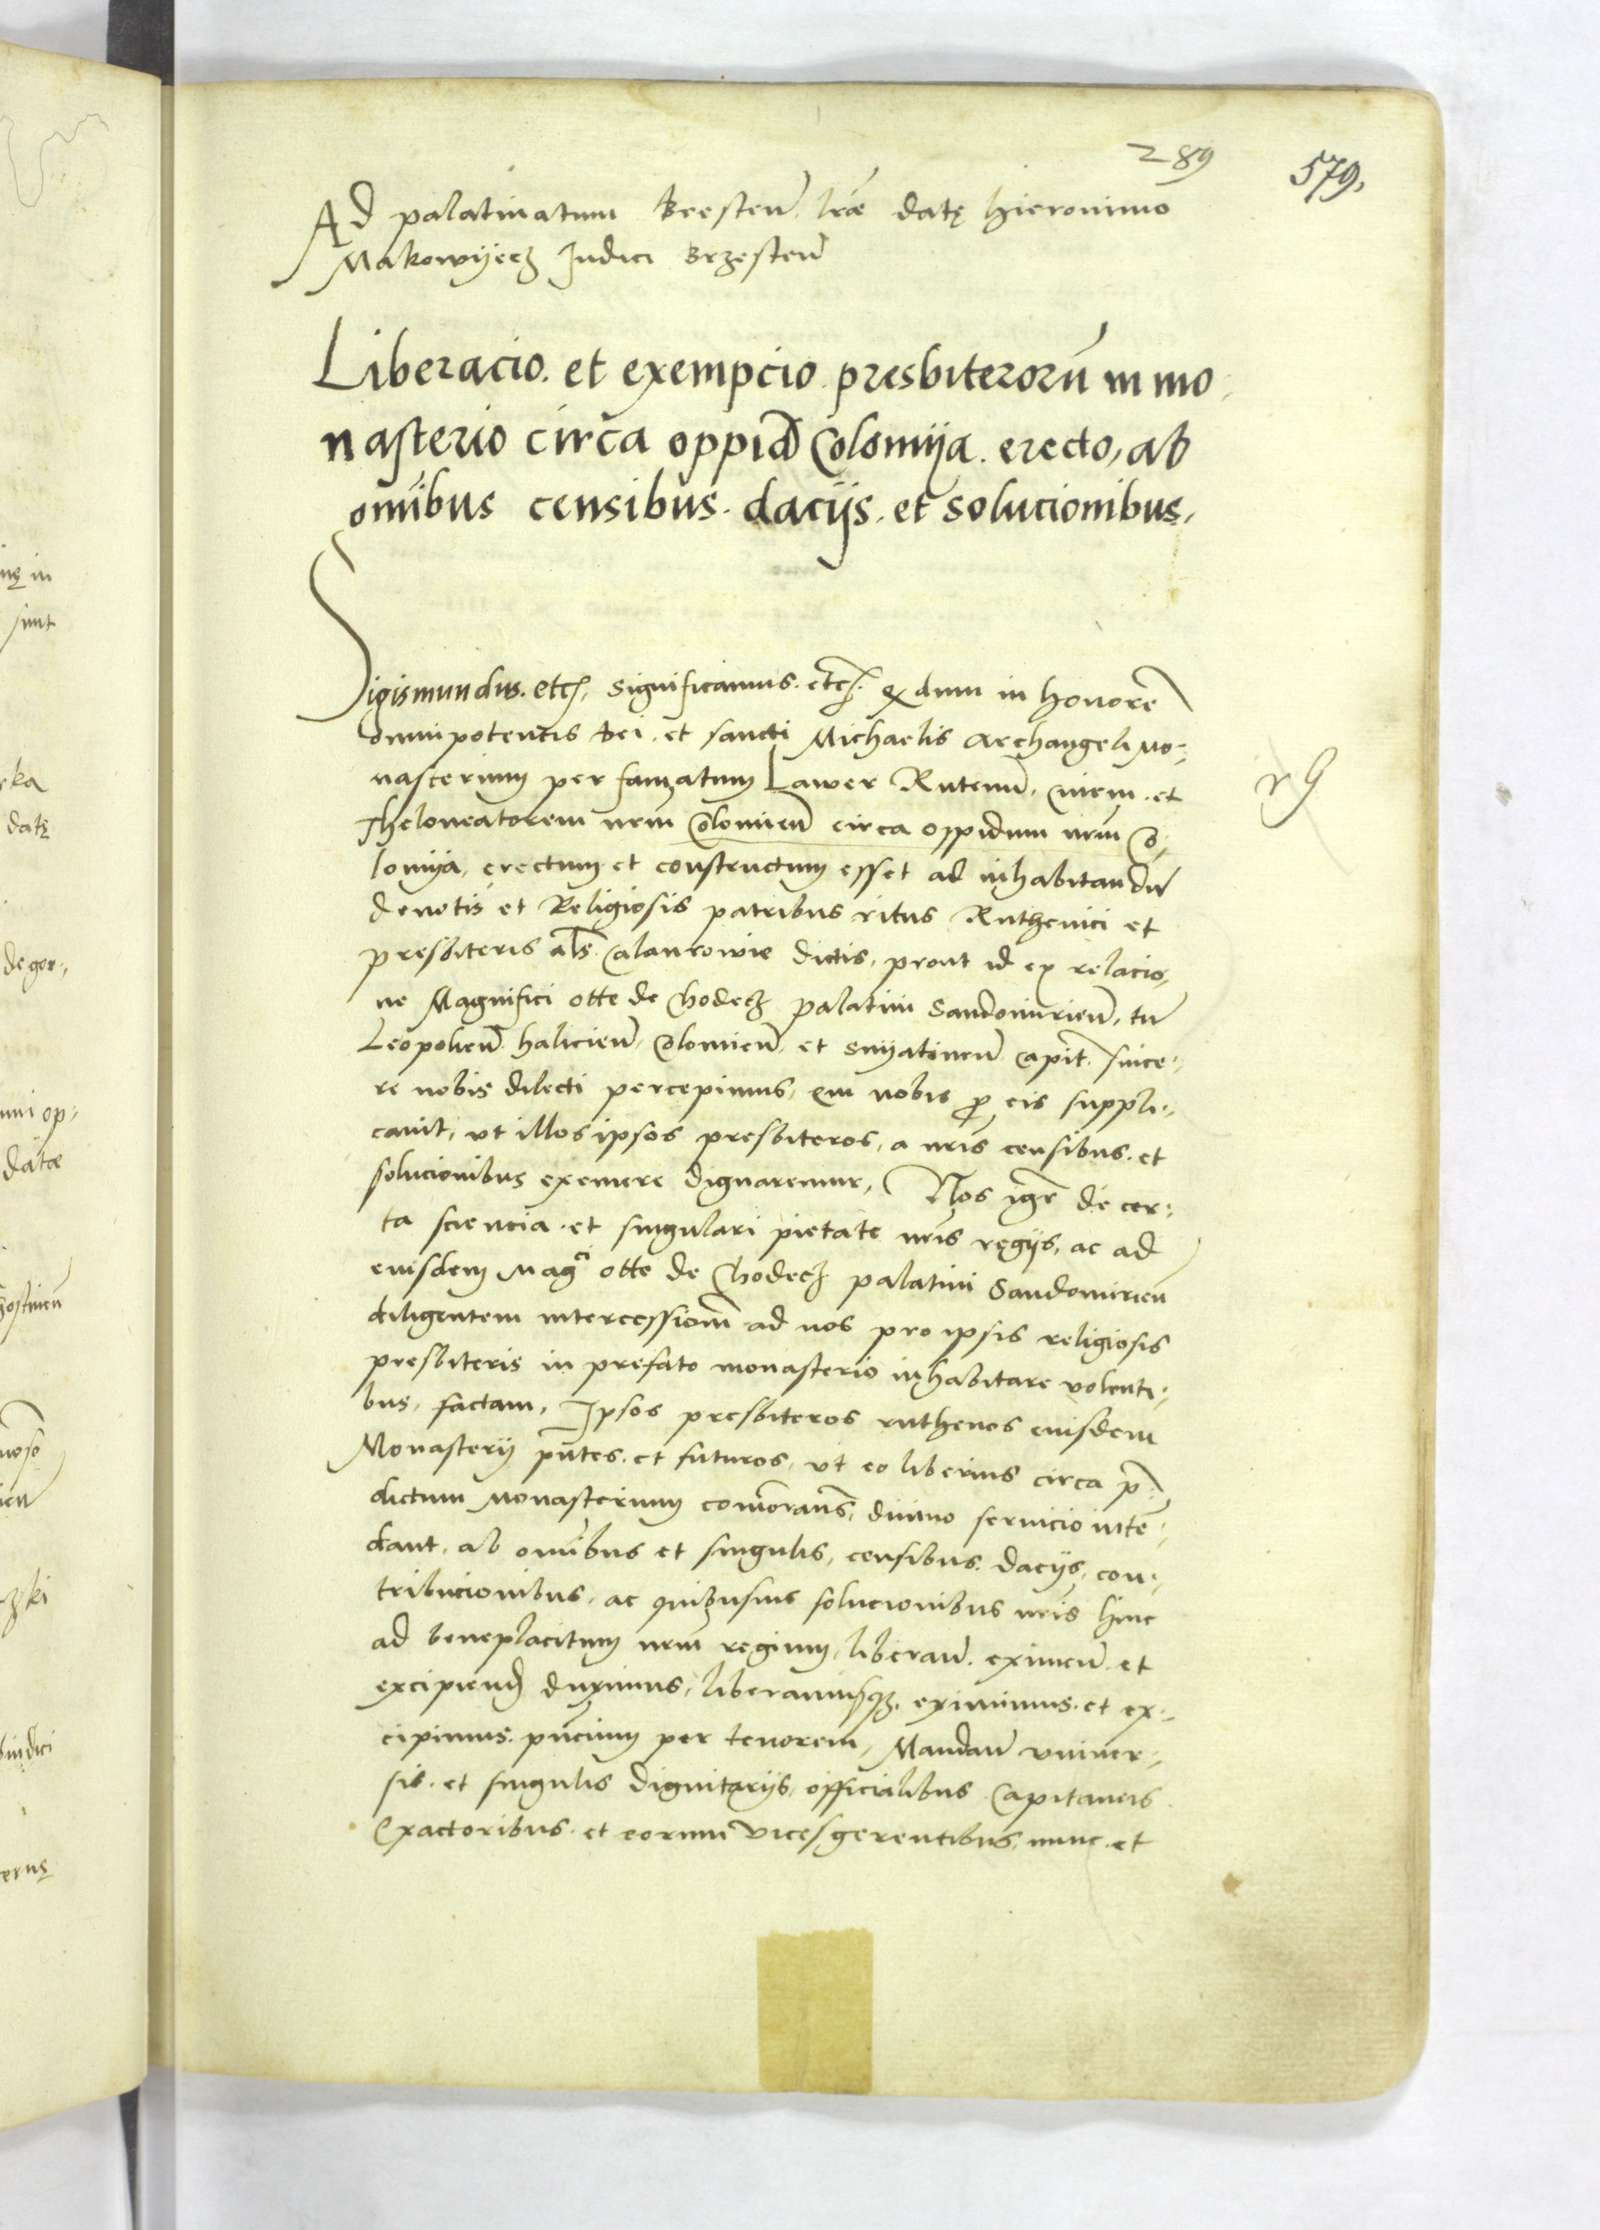 289
579.
Ad palatinatum Bresten̄ lr̄e datę Hieronimo
Makowyecz Judici Brzesten̄
Liberacio. et exempcio presbiterorū in mo-
nasterio circa oppid̄ Colomija. erecto, ab
om̄ibus censibus. dacijs. et solucionibus.
Sigismundus. etc̄. Significamus. etc̄. q̄ dum in honorē
omnipotentis dei. et sancti Michaelis Archangeli Mo-
nasterium per famatum Lawer Rutenū, Civem. et
Theloneatorem nr̄m Colomien̄ circa oppidum nr̄m Co-
lomija, erectum et constructum esset ad inhabitandū
devotis et Religiosis patribus ritus Ruthenici et
presbiteris al̄s. Calancowie dictis, prout id ex relacio-
ne Magnifici Otte de Chodecz palatini Sandomirien̄, tū
Leopolien̄ halicien̄ Colomien̄ et Snyatinen̄ Capit̄. since-
re nobis dilecti percepimus, qui nobis p̄ eis suppli-
cavit, ut illos ipsos presbiteros, a nr̄is censibus. et
solucionibus eximere dignaremur, Nos igr̄ de cer-
ta sciencia. et singulari pietate nr̄is regijs, ac ad
eiusdem Mag^ci Otte de Chodecz palatini Sandomirien̄
diligentem intercessiom̄ ad nos pro ipsis religiosis
presbiteris in prefato monasterio inhabitare volenti-
bus, factam, Ipsos presbiteros ruthenos eiusdem
Monasterij pn̄tes. et futuros, ut eo liberius circa p̄-
dictum Monasterium com̄oran̄s, divino servicio intē-
dant, ab om̄ibus et singulis, censibus. dacijs, con-
tribucionibus, ac quibusvis solucionibus nr̄is hinc
ad beneplacitum nr̄m regium, liberan̄. eximen̄. et
excipiend̄ duximus, liberamusq̄. eximimus. et ex-
cipimus. pn̄cium per tenorem, Mandan̄ univer-
sis. et singulis dignitarijs, officialibus Capitaneis
Exactoribus. et eorum vicesgerentibus, nunc. et